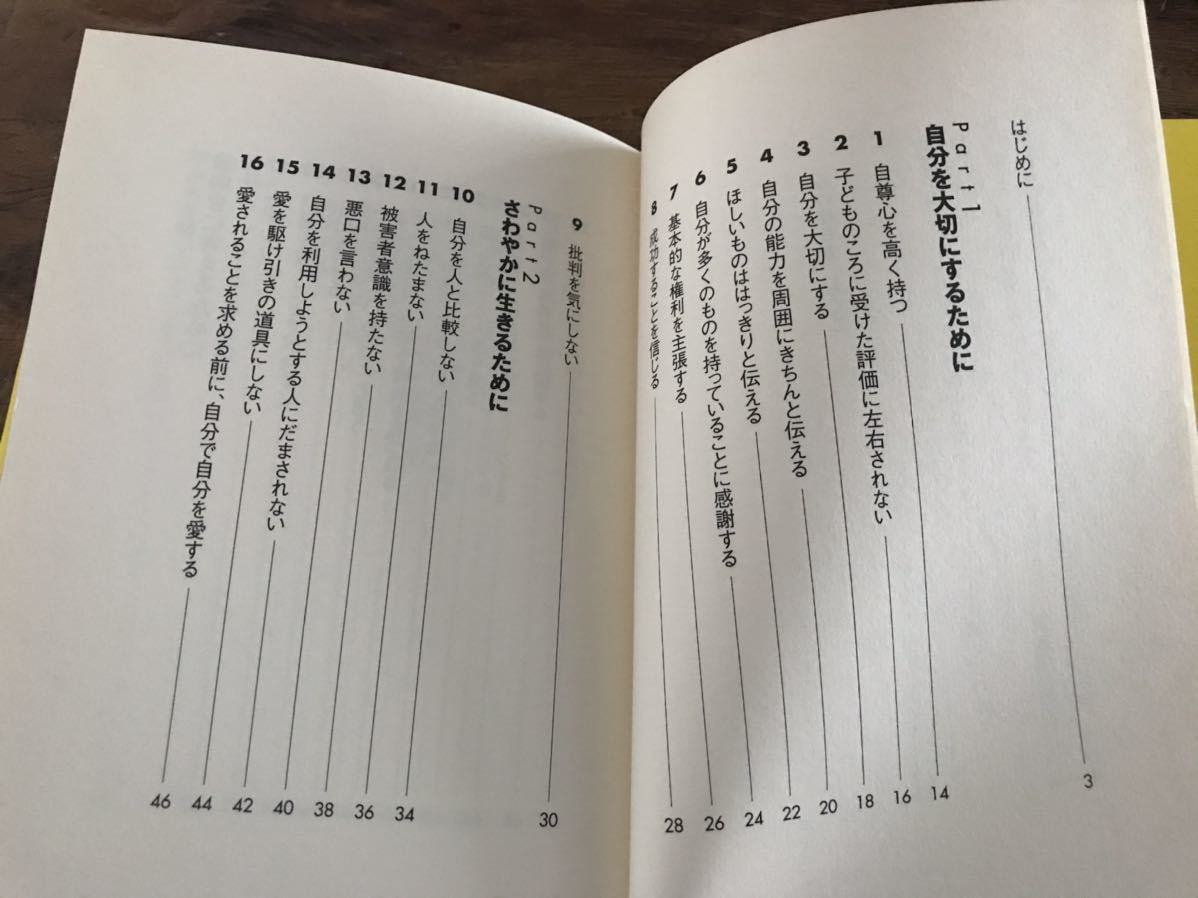 はじめに 3
Part1
自分を大切にするために
1 自尊心を高く持つ 14
2 子どものころに受けた評価に左右されない 16
3 自分を大切にする 18
4 自分の能力を周囲にきちんと伝える 20
5 ほしいものははっきりと伝える 22
6 自分が多くのものを持っていることに感謝する 24
7 基本的な権利を主張する 26
8 成功することを信じる 28
9 批判を気にしない 30
Part2
さわやかに生きるために
10 自分を人と比較しない 34
11 人をねたまない 36
12 被害者意識を持たない 38
13 悪口を言わない 40
14 自分を利用しようとする人にだまされない 42
15 愛を駆け引きの道具にしない 44
16 愛されることを求める前に、自分で自分を愛する 46